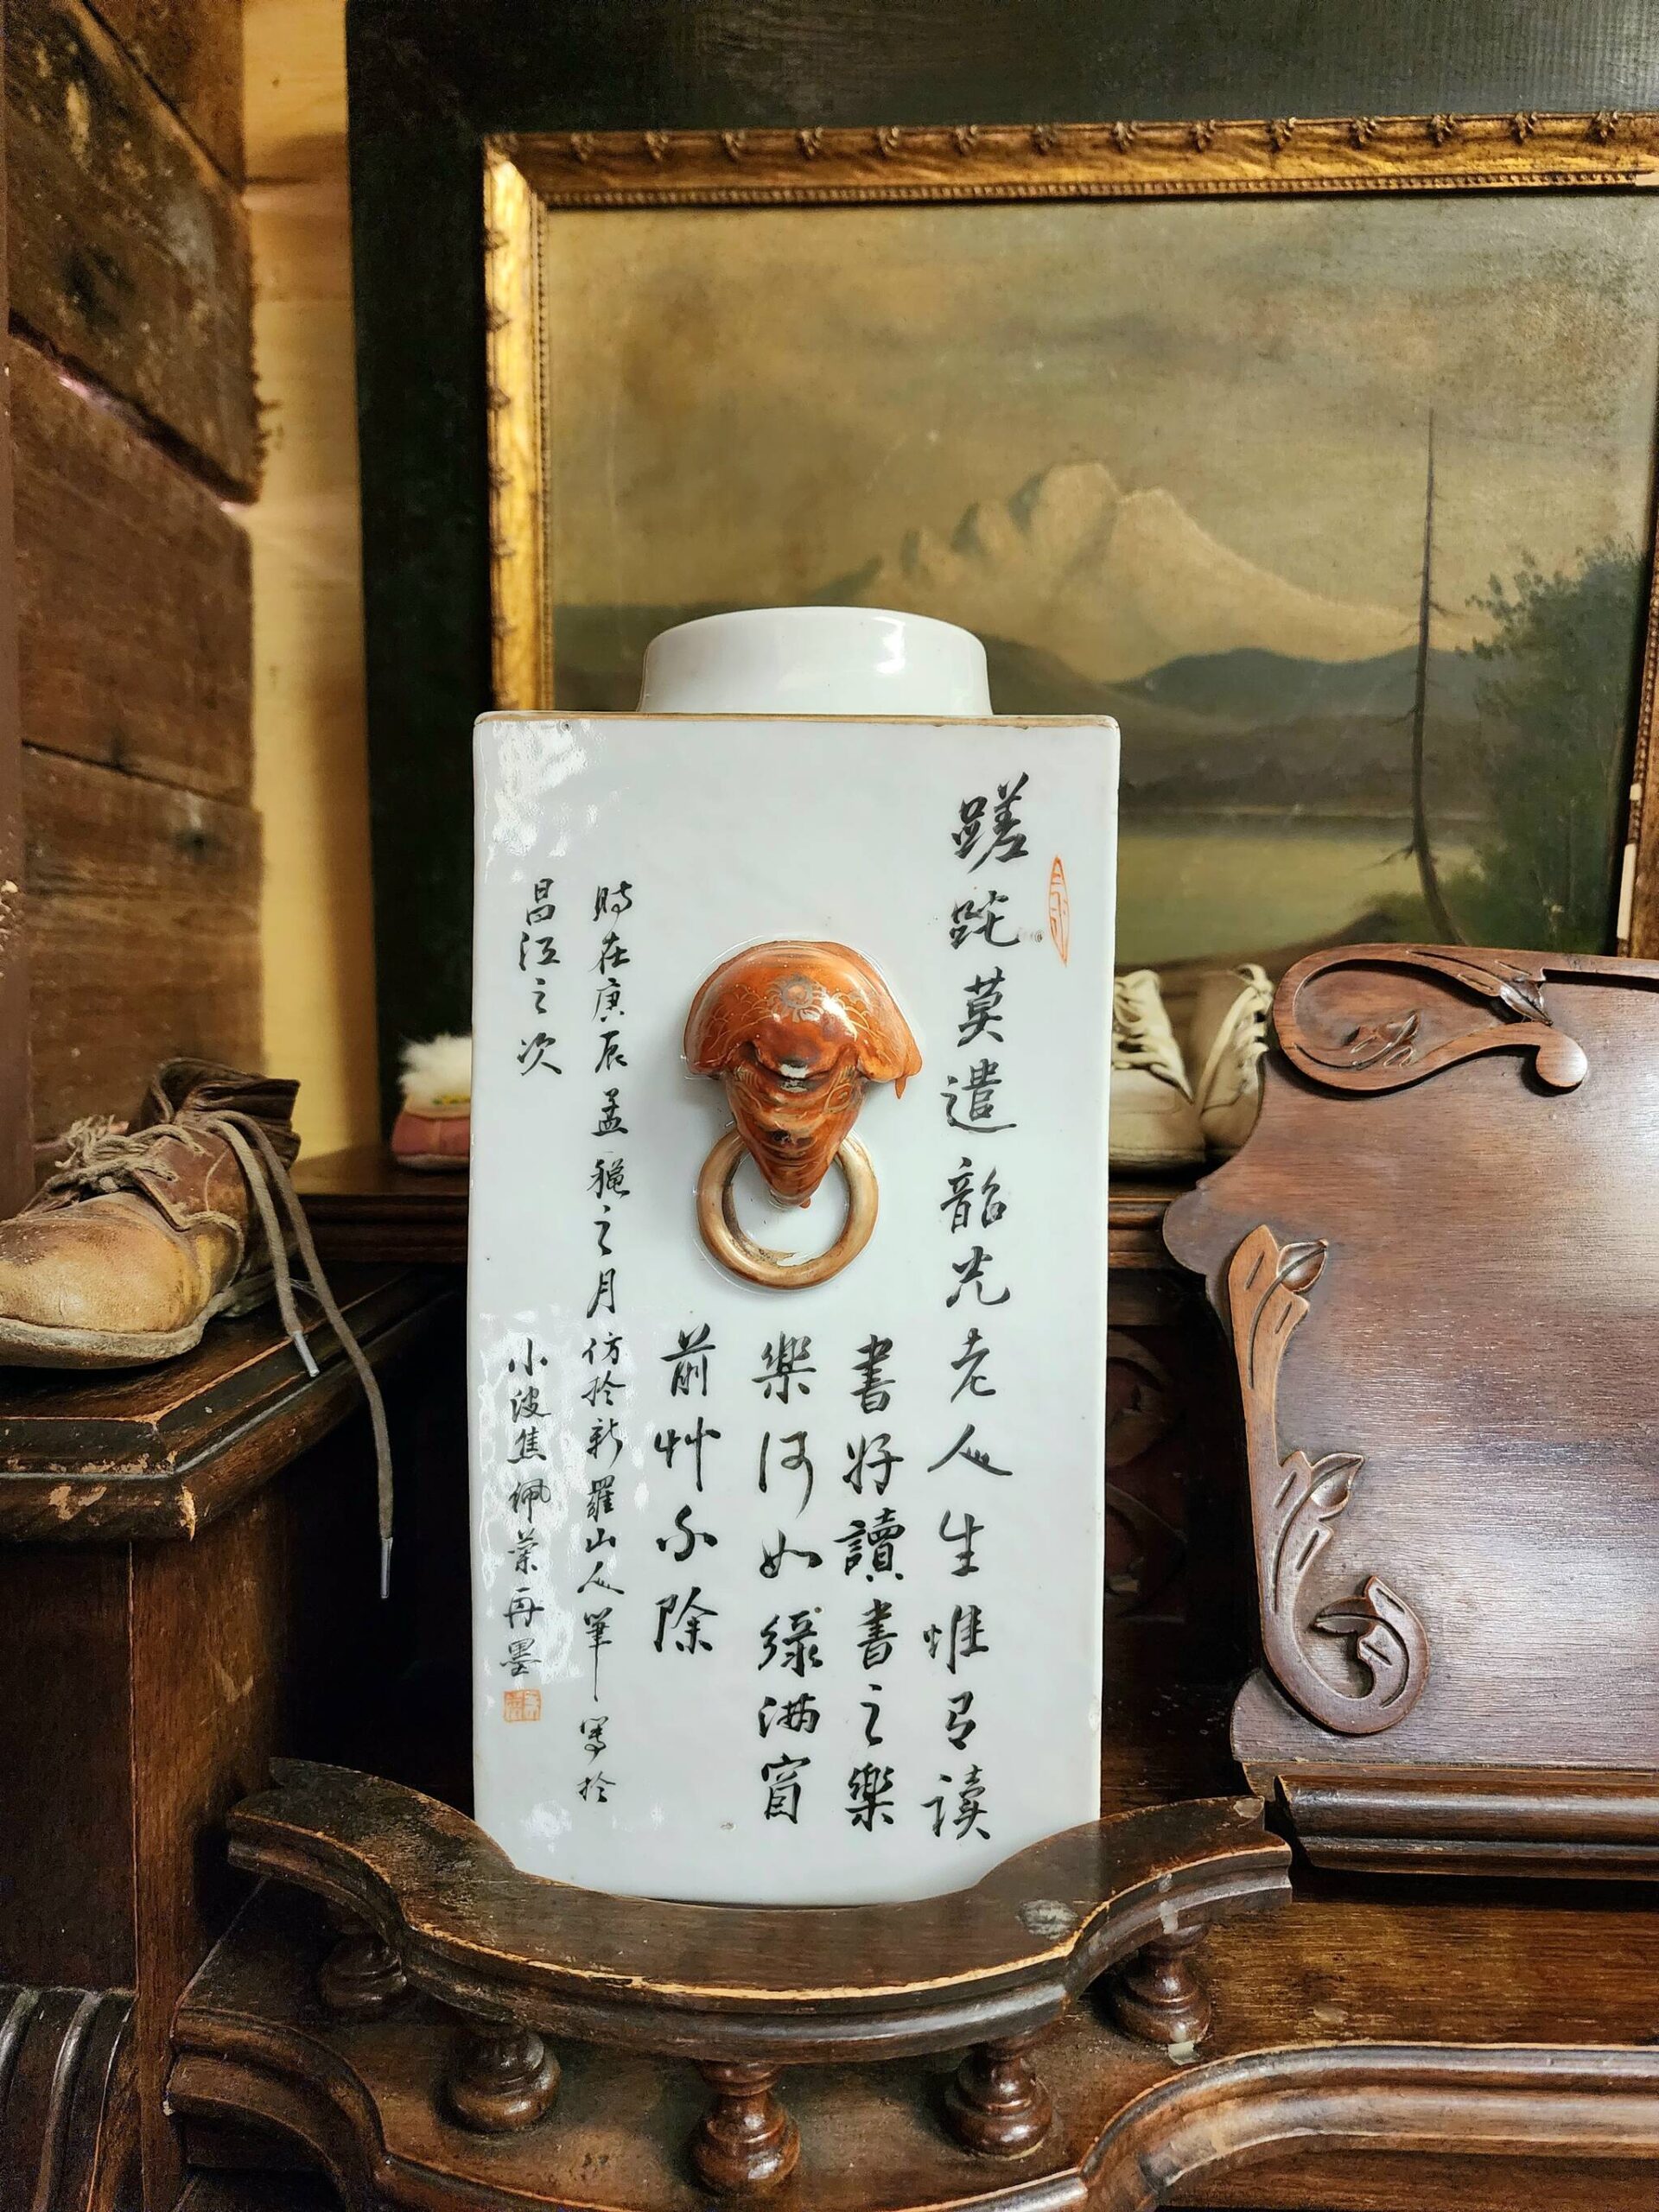 蹉跎莫遣韶光老人生惟有讀
書好讀書之樂
樂何如綠滿窗
前艸不除
時在庚辰孟穐之月仿於新羅山人筆寫於
昌江之次
小波焦佩蘭再墨